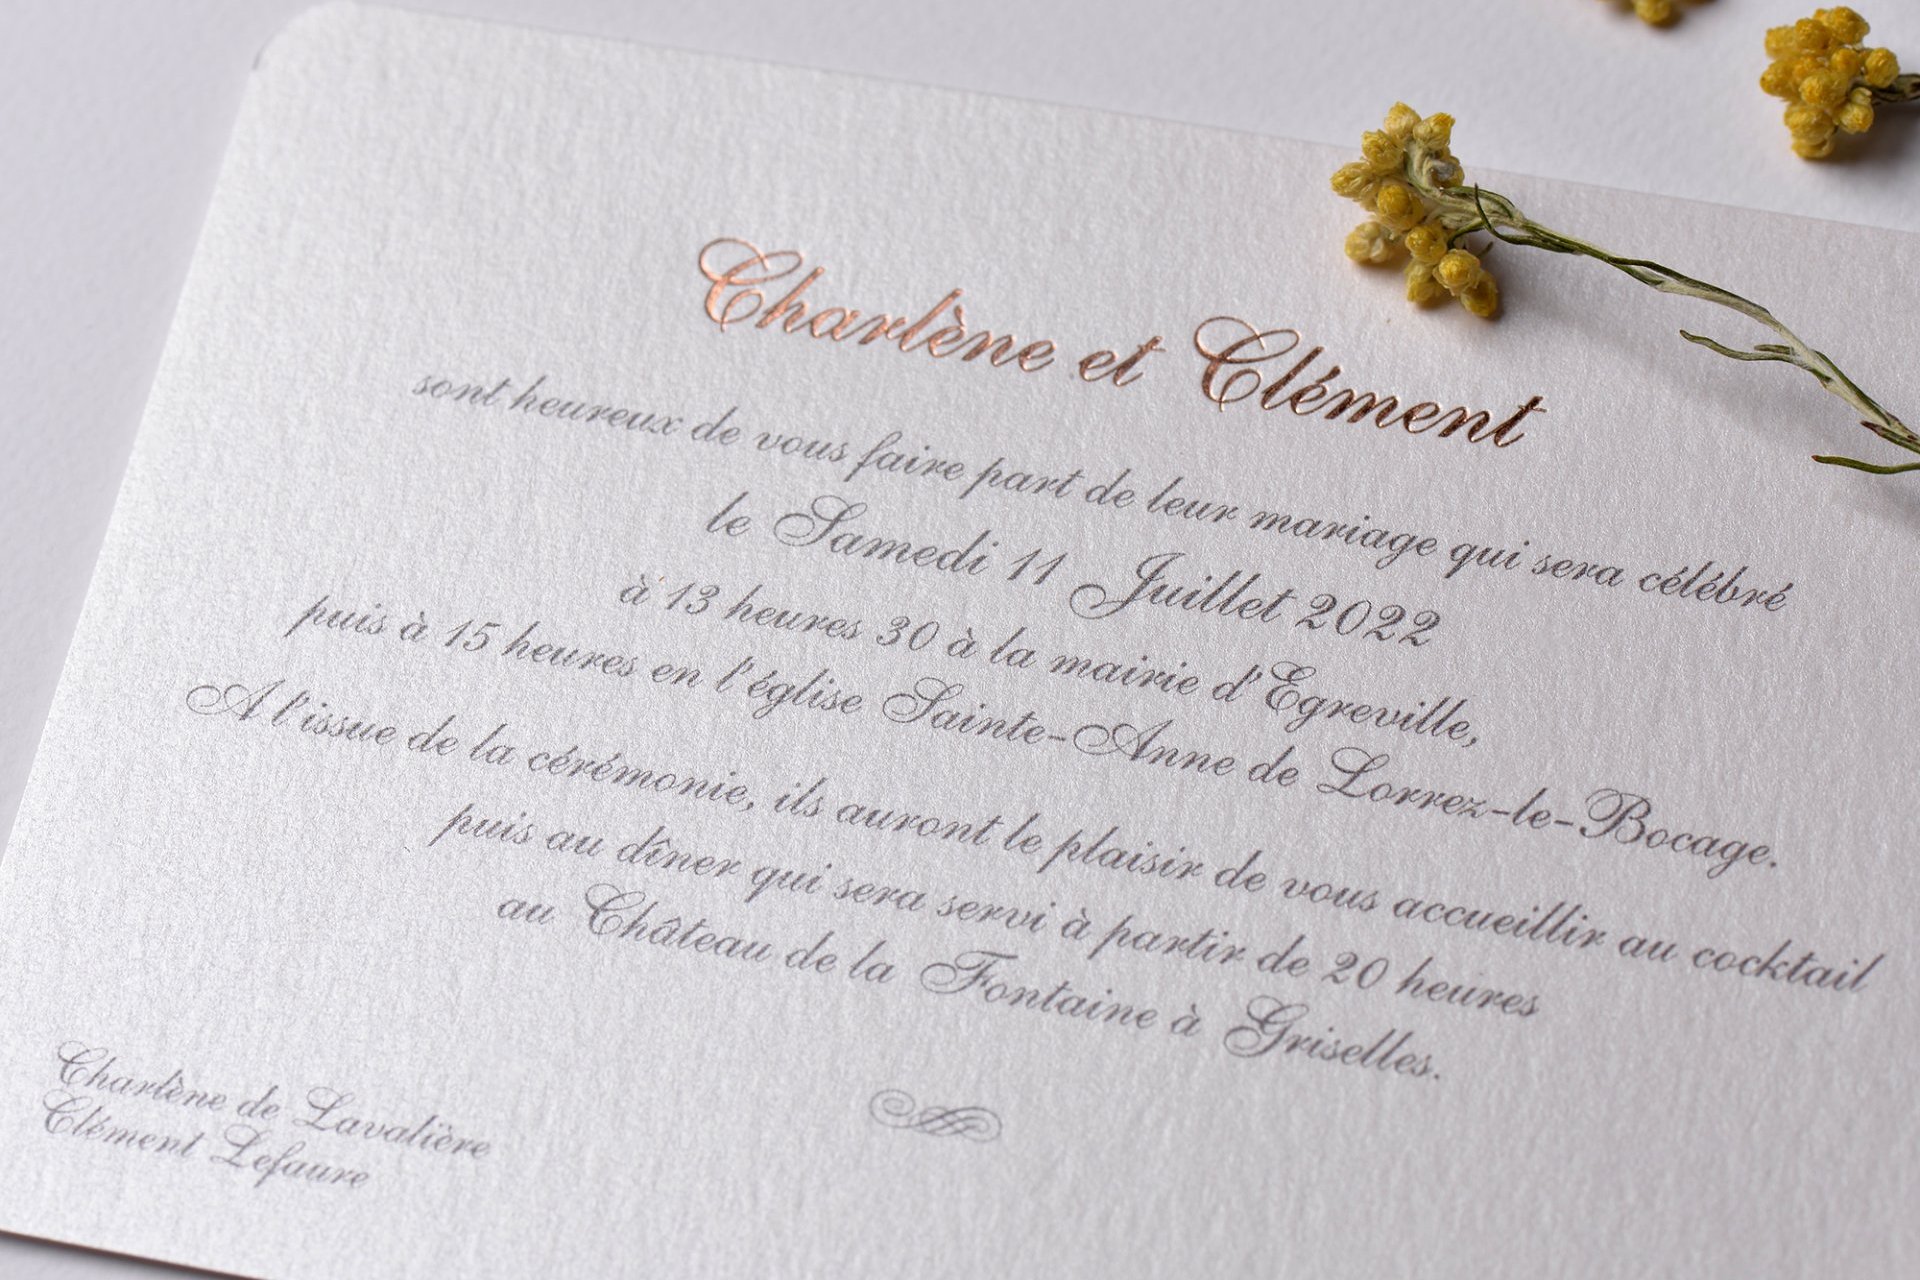 Charlène et Clément
sont heureux de vous faire part de leur mariage qui sera célébré
le Samedi 11 Juillet 2022
à 13 heures 30 à la mairie d'Egreville,
puis à 15 heures en l'église Sainte-Anne de Lorrez-le-Bocage.
A l'issue de la cérémonie, ils auront le plaisir de vous accueillir au cocktail
puis au dîner qui sera servi à partir de 20 heures
au Château de la Fontaine à Griselles.
Charlène de Lavalière
Clément Lefaure